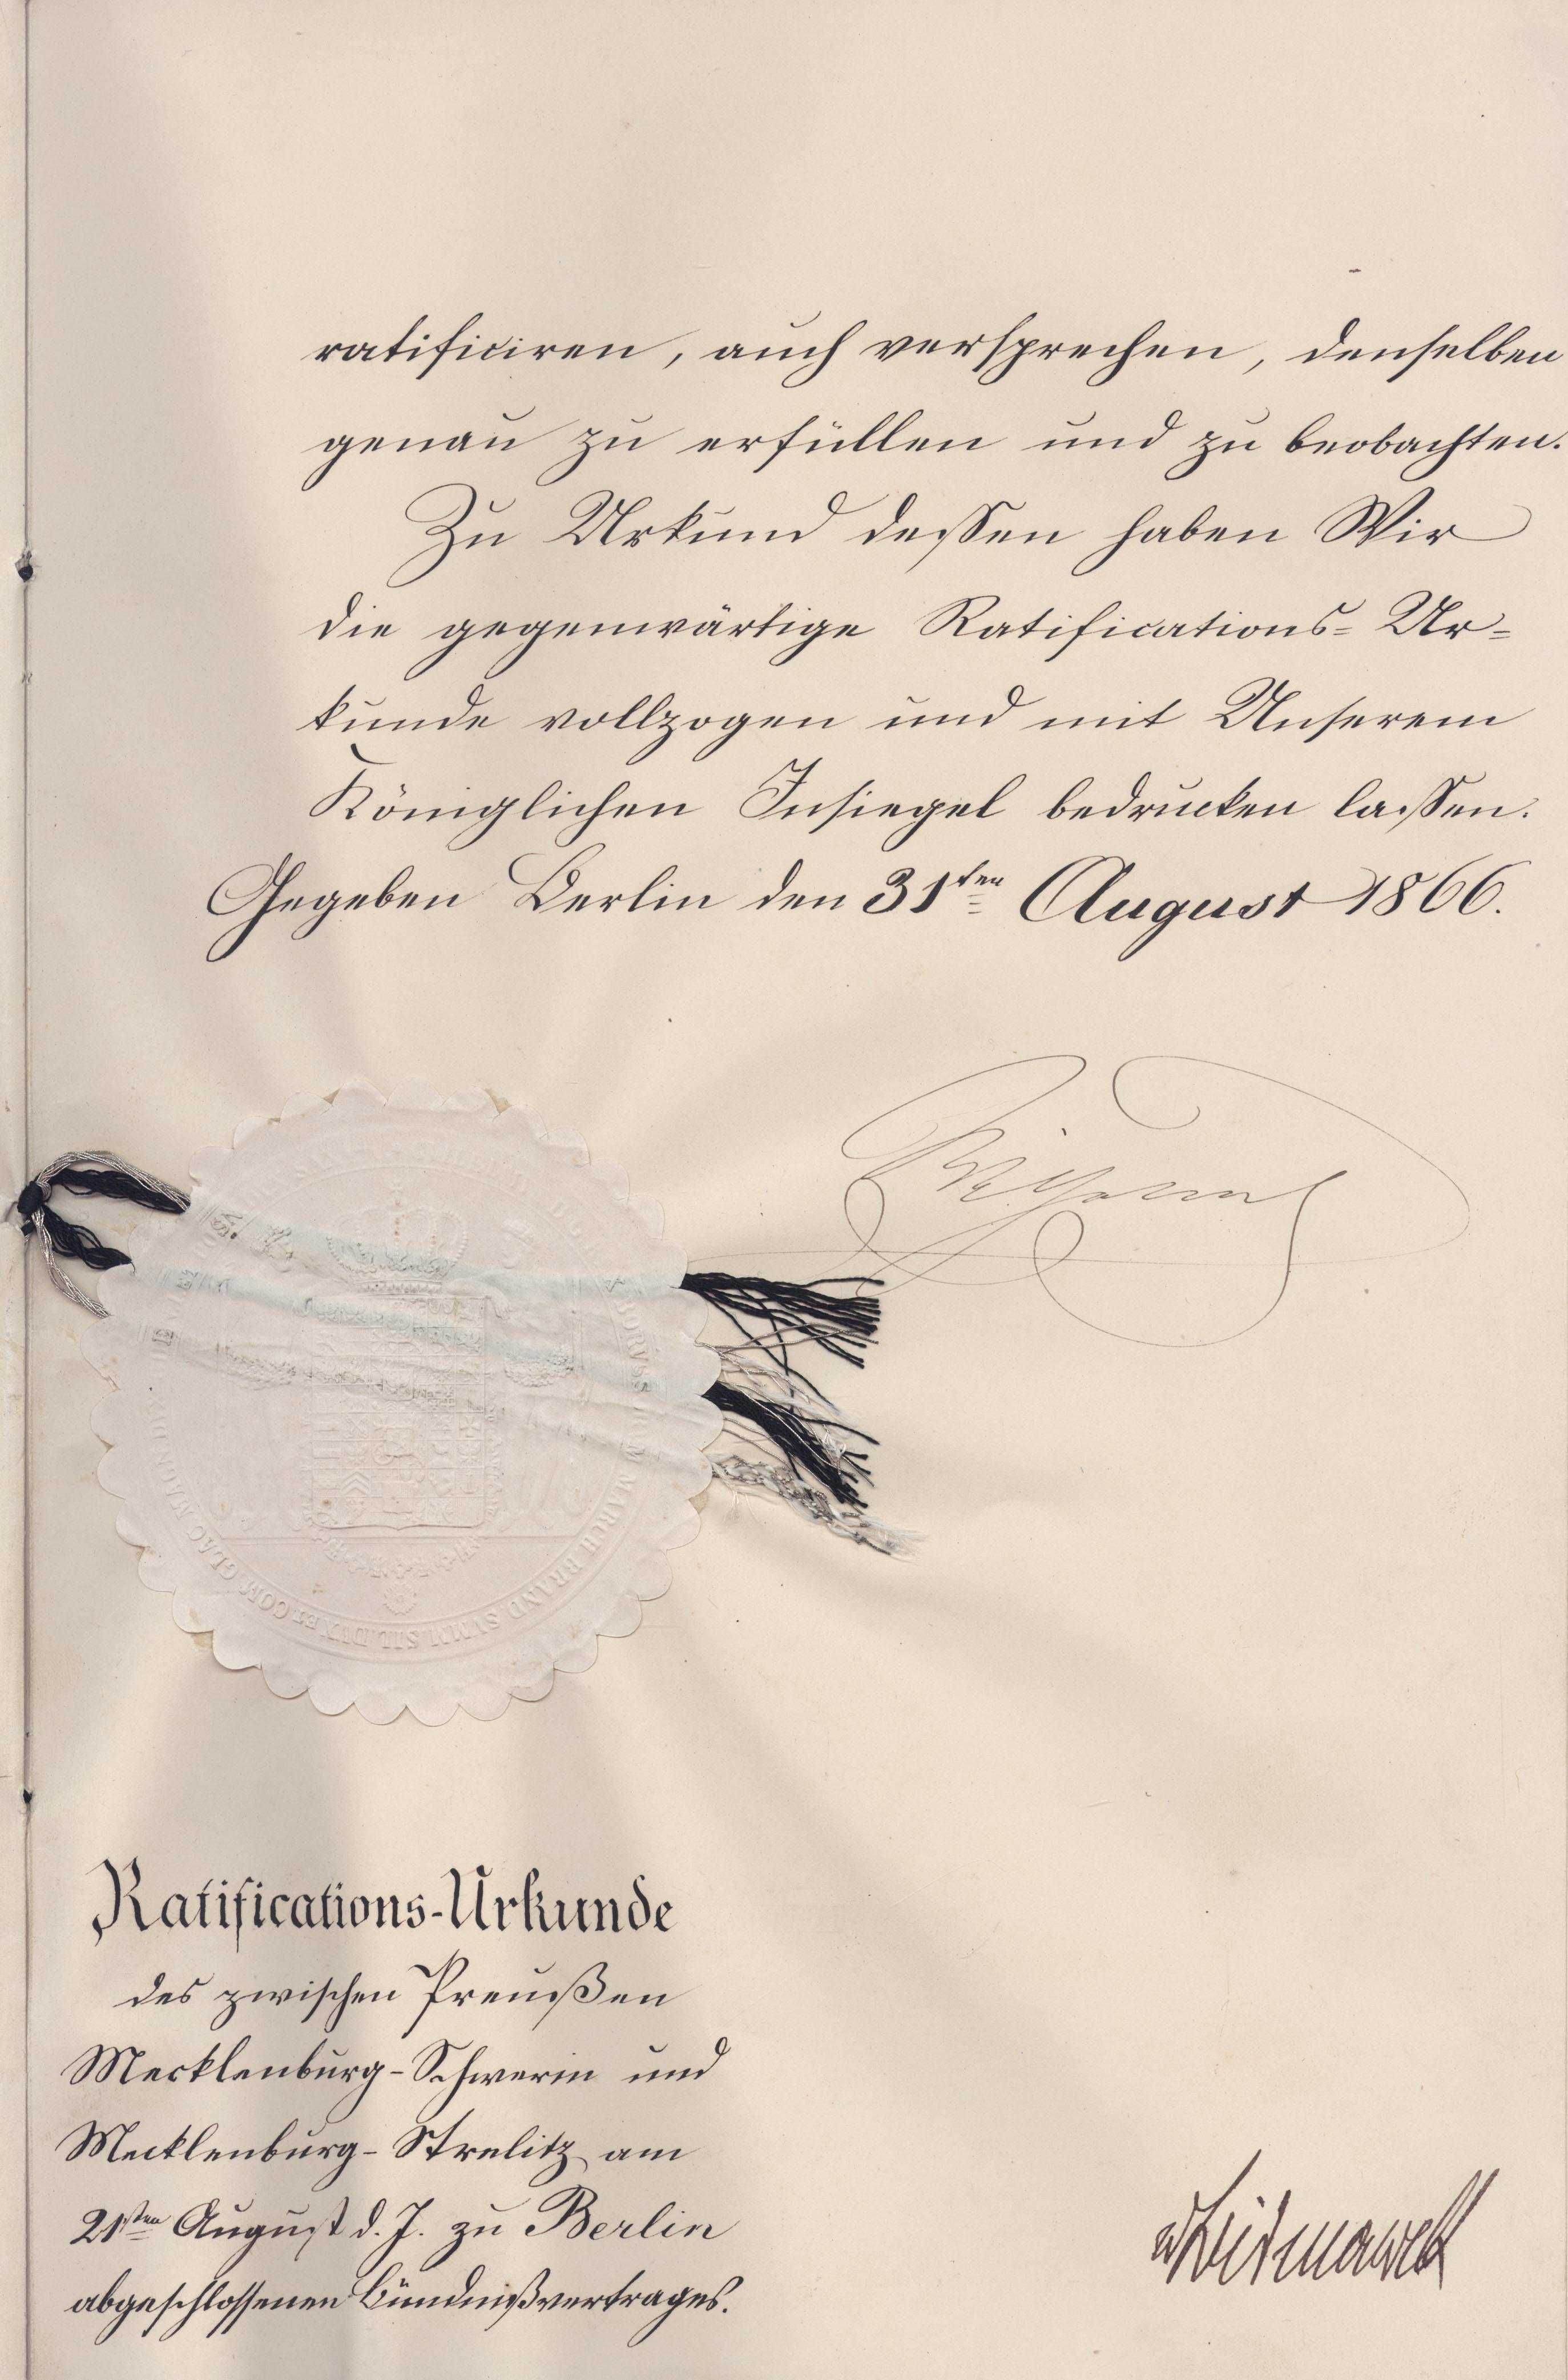 ratificiren, auch versprechen, denselben
genau zu erfüllen und zu beobachten.
Zu Urkund dessen haben Wir
die gegenwärtige Ratifications-Ur-
kunde vollzogen und mit Unserem
Königlichen Insiegel bedrucken lassen.
Gegeben Berlin den 31ten August 1866.
Wilhelm
Ratifications-Urkunde
des zwischen Preußen
Mecklenburg-Schwerin und
Mecklenburg-Strelitz am
21sten August d. J. zu Berlin
abgeschlossenen Bündnißvertrages.
vBismarck